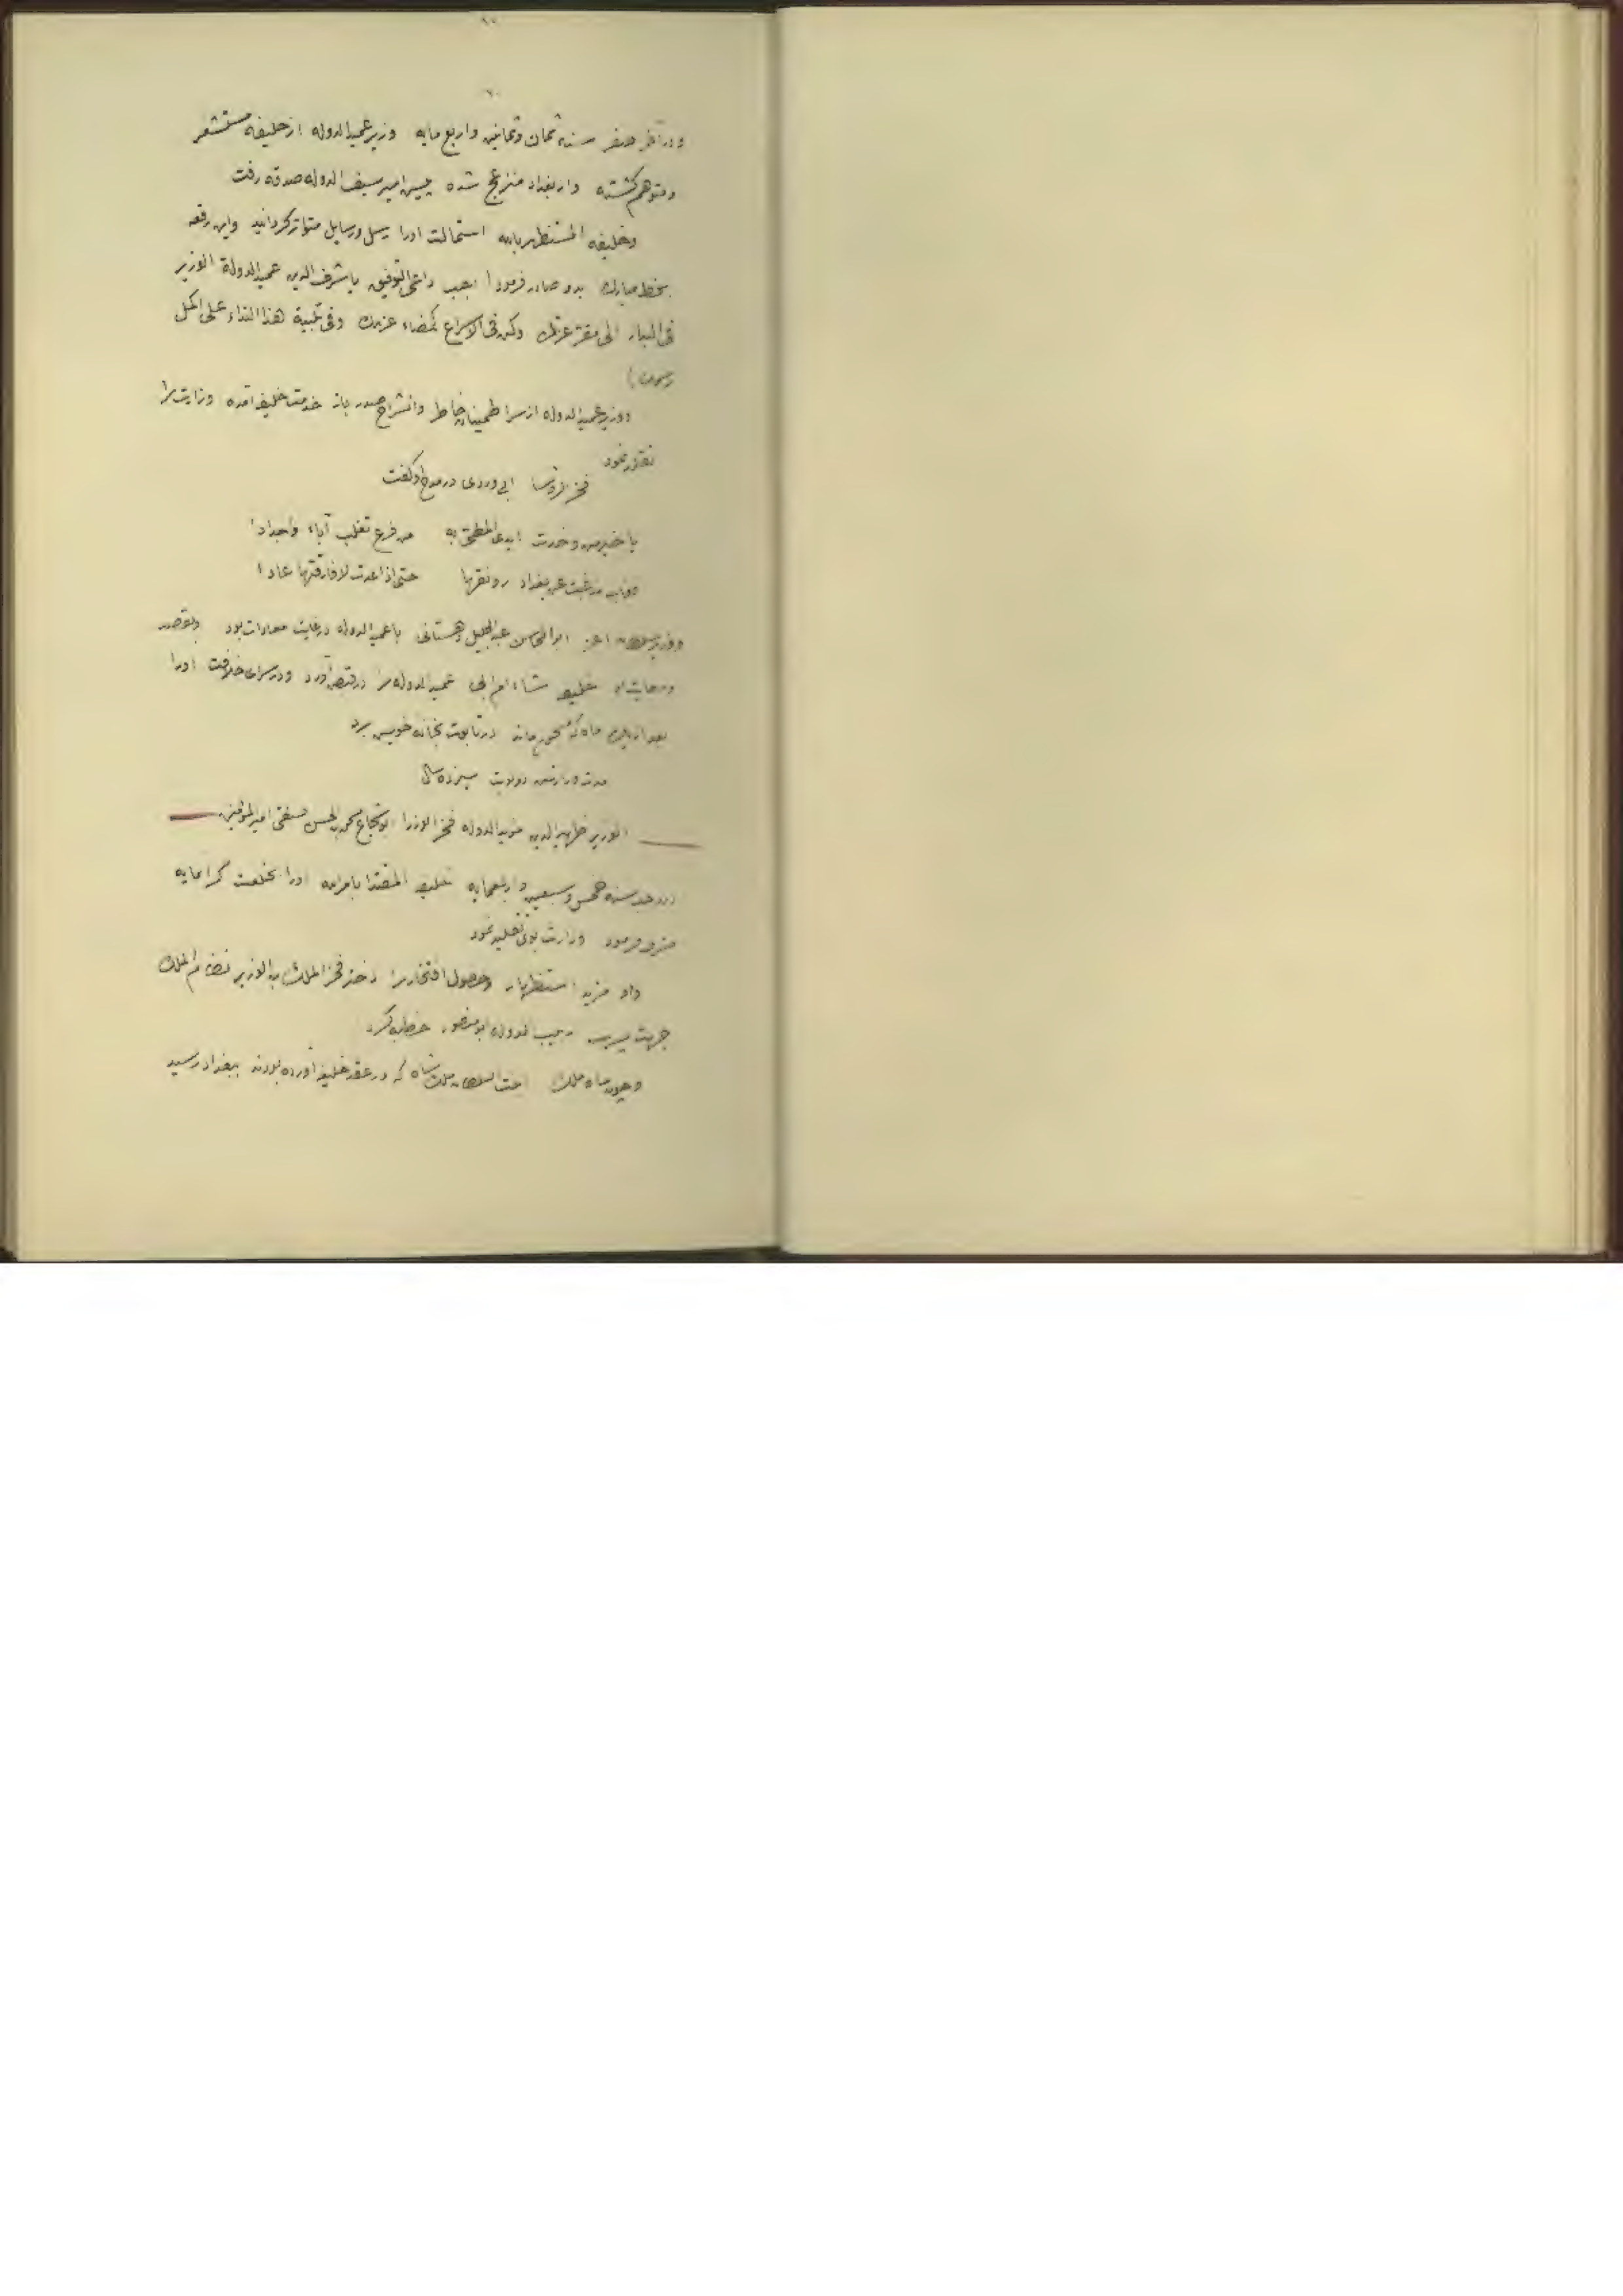 ٦٠
ودر آخر صفر سنه ثمان وثمانین واربع مایه وزیر عمید الدوله از خلیفه مستشعر
ومتوهم کشته واز بغداد منزعج شده پیش امیر سیف الدوله صدقه رفت
وخلیفه المستظهر بالله استمالت اورا برسل ورسایل متواتر کردانید واین رقعه
بخط مبارک بدو صادر فرمود اجب داعی التوفیق یا شرف الدین عمید الدولة الوزیر
فی المبار الی مقر عزک وکن فی الاسراع کمضاء عزمک وفی تلبیة هذا النداء علی اکمل
ووزیر عمید الدوله از سر اطمینان خاطر وانشراح صدر باز خدمت خلیفه آمده وزارت را
تقلد نمود
فخر الرؤسا ابی وردی در مدح او گفت
یا خیر من وخدت ایدی المطی به من فرع تغلب آباء واجدادا
مذ غبت عن بغداد رونقها حتی اذا عدت لا فارقتها عادا
ووزیر سلطان اعز ابو المحاسن عبد الجلیل دهستانی با عمید الدوله در غایت معادات بود وبقصد
وسعایت او خلیفه شاء ام ابی عمید الدوله را در قبض آورد ودر سرای خلافت اورا
بعد از ماه که محبوس ماند در تابوت بخانه خویش برد
مدت وزارتش دو نوبت سیزده سال
الوزیر ظهیر الدین موید الدوله فخر الوزرا ابو شجاع محمد بن الحسن صفی امیر المؤمنین
در رجب سنه خمس وسبعین واربعمایه خلیفه المقتدا بامر الله اورا بخلعت گرانمایه
فرمود وزارت بوی تقلید نمود
واو مزید استظهار وحصول افتخار را دختر فخر الملک بن الوزیر نظام الملک
جهت پسرش نجیب الدوله ابو منصور خطبه کرد
وچون ماه ملک اخت السلطان ملک شاه که در عقد خلیفه آورده بودند ببغداد رسید